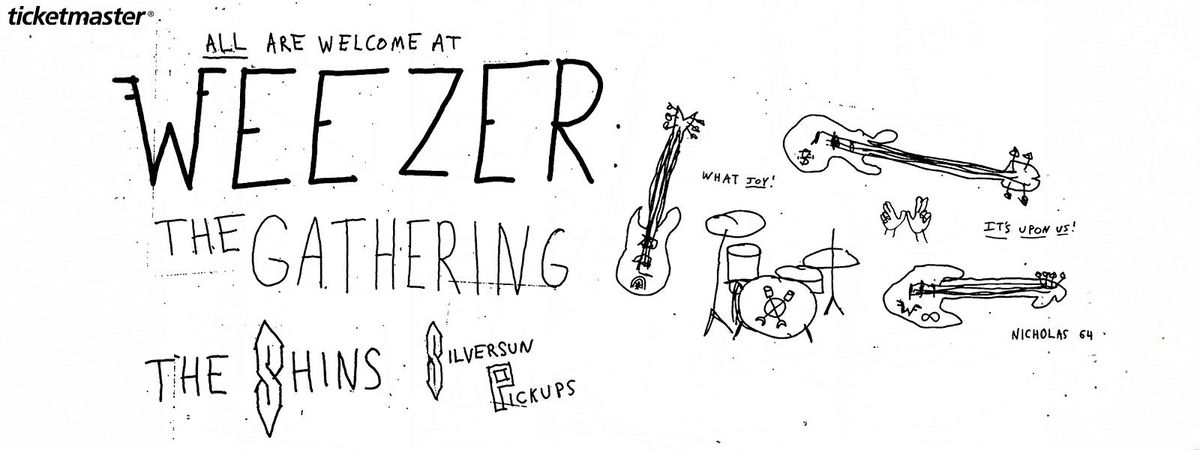 ticketmaster®
ALL ARE WELCOME AT
WEEZER
THE GATHERING
THE SHINS
SILVERSUN
PICKUPS
WHAT JOY!
IT'S UPON US!
NICHOLAS 64